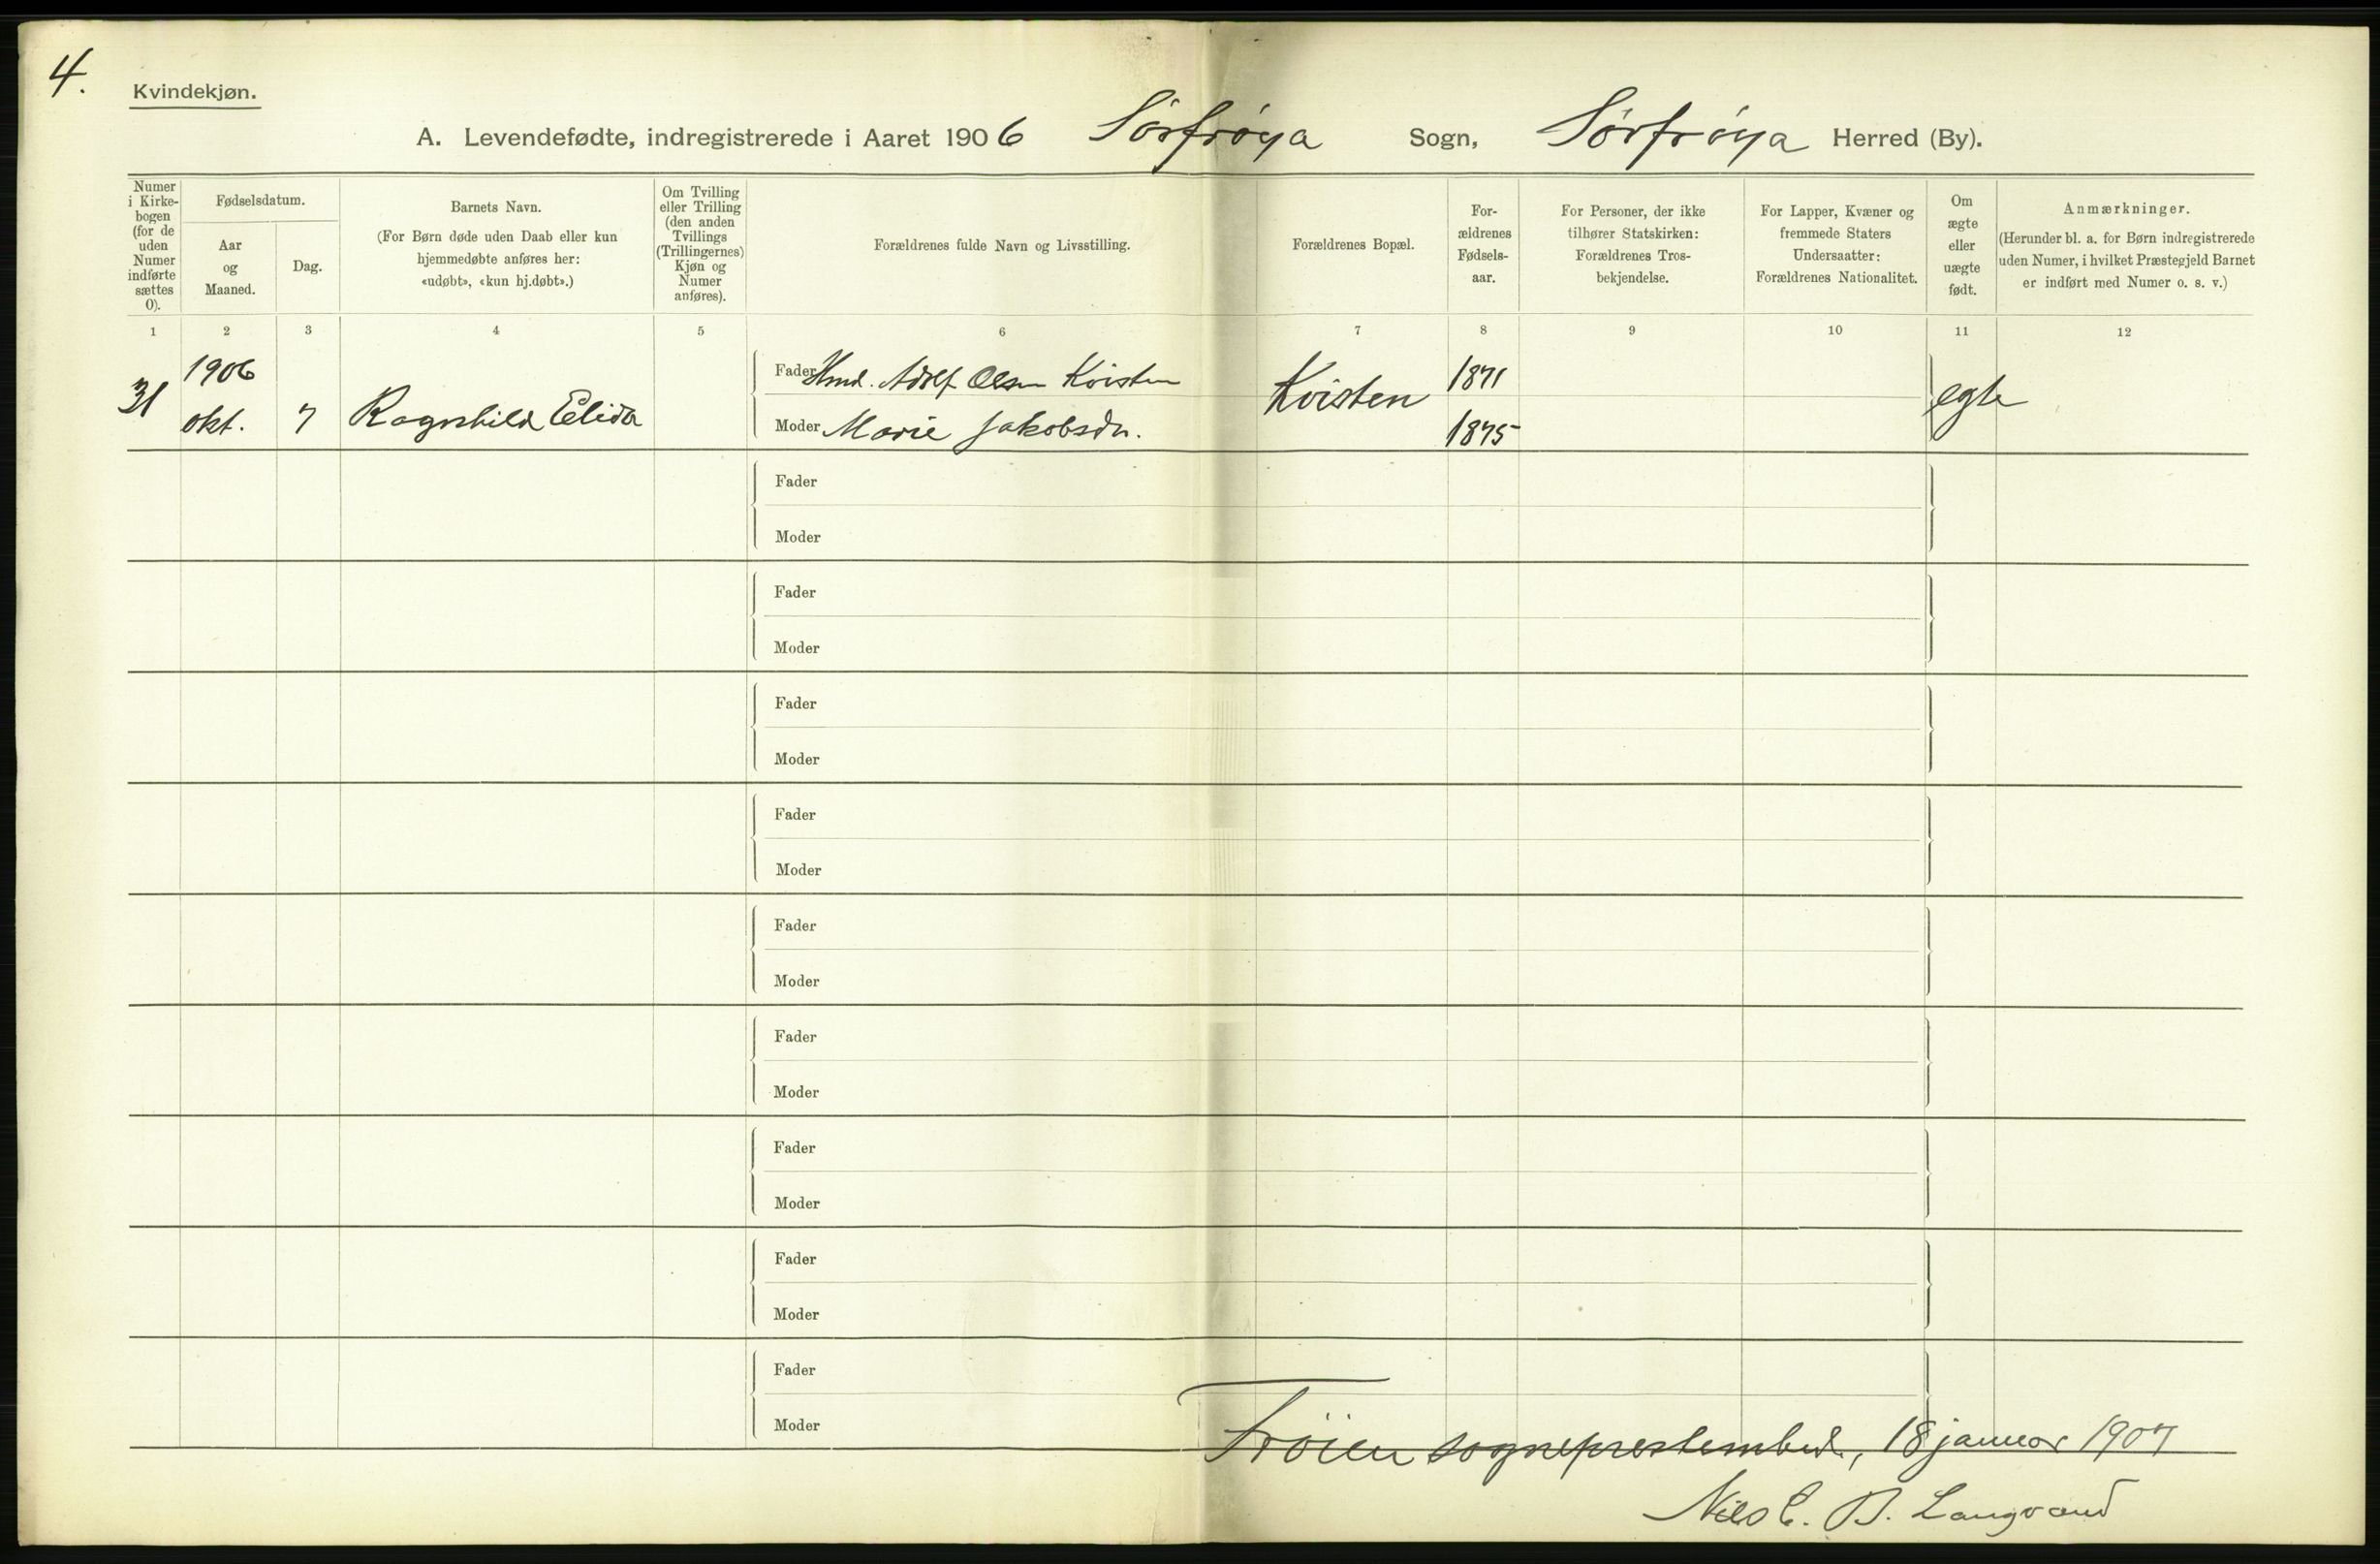 4.
Kvindekjøn.
A. Levendefødte, indregistrerede i Aaret 1906 Sørfrøya Sogn, Sørfrøya Herred (By).
Numer i Kirke-bogen (for de uden Numer indførte sættes 0).
Fødselsdatum.
Aar og Maaned.
Dag.
Barnets Navn.
(For Børn døde uden Daab eller kun
hjemmedøbte anføres her:
«udøbt», «kun hj.døbt».)
Om Tvilling
eller Trilling
(den anden
Tvillings
(Trillingernes)
Kjøn og
Numer
anføres).
Forældrenes fulde Navn og Livsstilling.
Forældrenes Bopæl.
For-
ældrenes
Fødsels-
aar.
For Personer, der ikke
tilhører Statskirken:
Forældrenes Tros-
bekjendelse.
For Lapper, Kvæner og
fremmede Staters
Undersaatter:
Forældrenes Nationalitet.
Om
ægte
eller
uægte
født.
Anmærkninger.
(Herunder bl. a. for Børn indregistrerede
uden Numer, i hvilket Præstegjeld Barnet
er indført med Numer o. s. v.)
1 2 3 4 5 6 7 8 9 10 11 12
31 1906 okt. 7 Ragnhild Elida
Fader Hmd. Adolf Olsen Kvisten Kvisten 1871 egte
Moder Marie Jakobsdn. 1875
Fader
Moder
Fader
Moder
Fader
Moder
Fader
Moder
Fader
Moder
Fader
Moder
Fader
Moder
Fader
Moder
Fader
Moder
Frøien sogneprestembed, 18 januar 1907
Nils E. B. Langvand